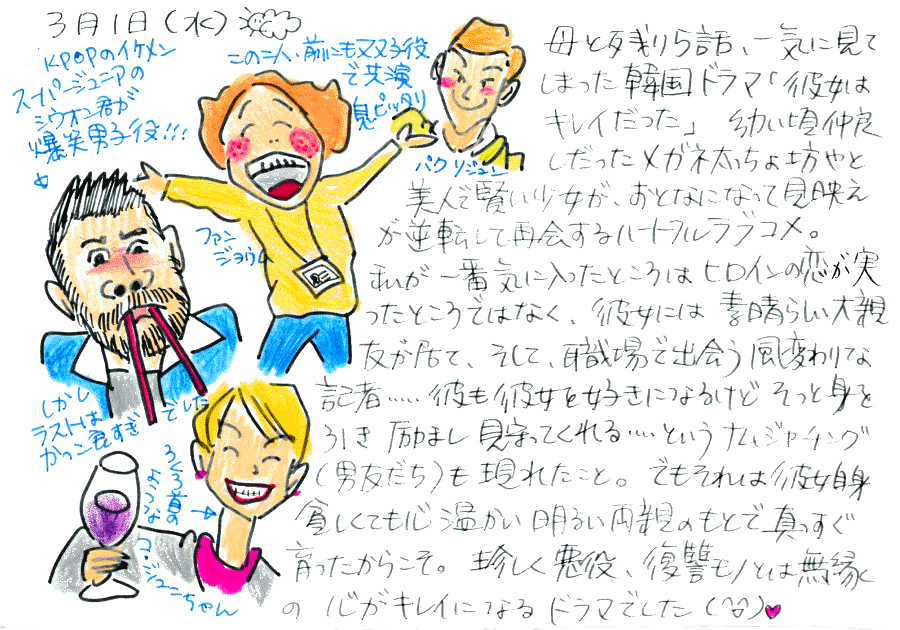 3月1日(水)
KPOPのイケメン
スーパージュニアの
シウォン君が
爆笑男子役!!!
この二人、前にも双子役
で共演
息ピッタリ
パク ソジュン
ファン
ジョウム
しかし
ラストは
かっこ良すぎ
でした
ろくろ首の
ような
コ・ジュニちゃん
母と残り5話、一気に見て
しまった韓国ドラマ「彼女は
キレイだった」 幼い頃仲良
しだったメガネ太っちょ坊やと
美人で賢い少女が、おとなになって見映え
が逆転して再会するハートフルラブコメ。
私が一番気に入ったところはヒロインの恋が実
ったところではなく、彼女には素晴らしい大親
友が居て、そして、職場で出会う風変わりな
記者……彼も彼女を好きになるけどそっと身を
引き励まし見守ってくれる……というナムジャチング
(男友だち)も現れたこと。でもそれは彼女自身
貧しくても心温かい明るい両親のもとで真っすぐ
育ったからこそ。珍しく悪役、復讐モノとは無縁
の心がキレイになるドラマでした(^^)